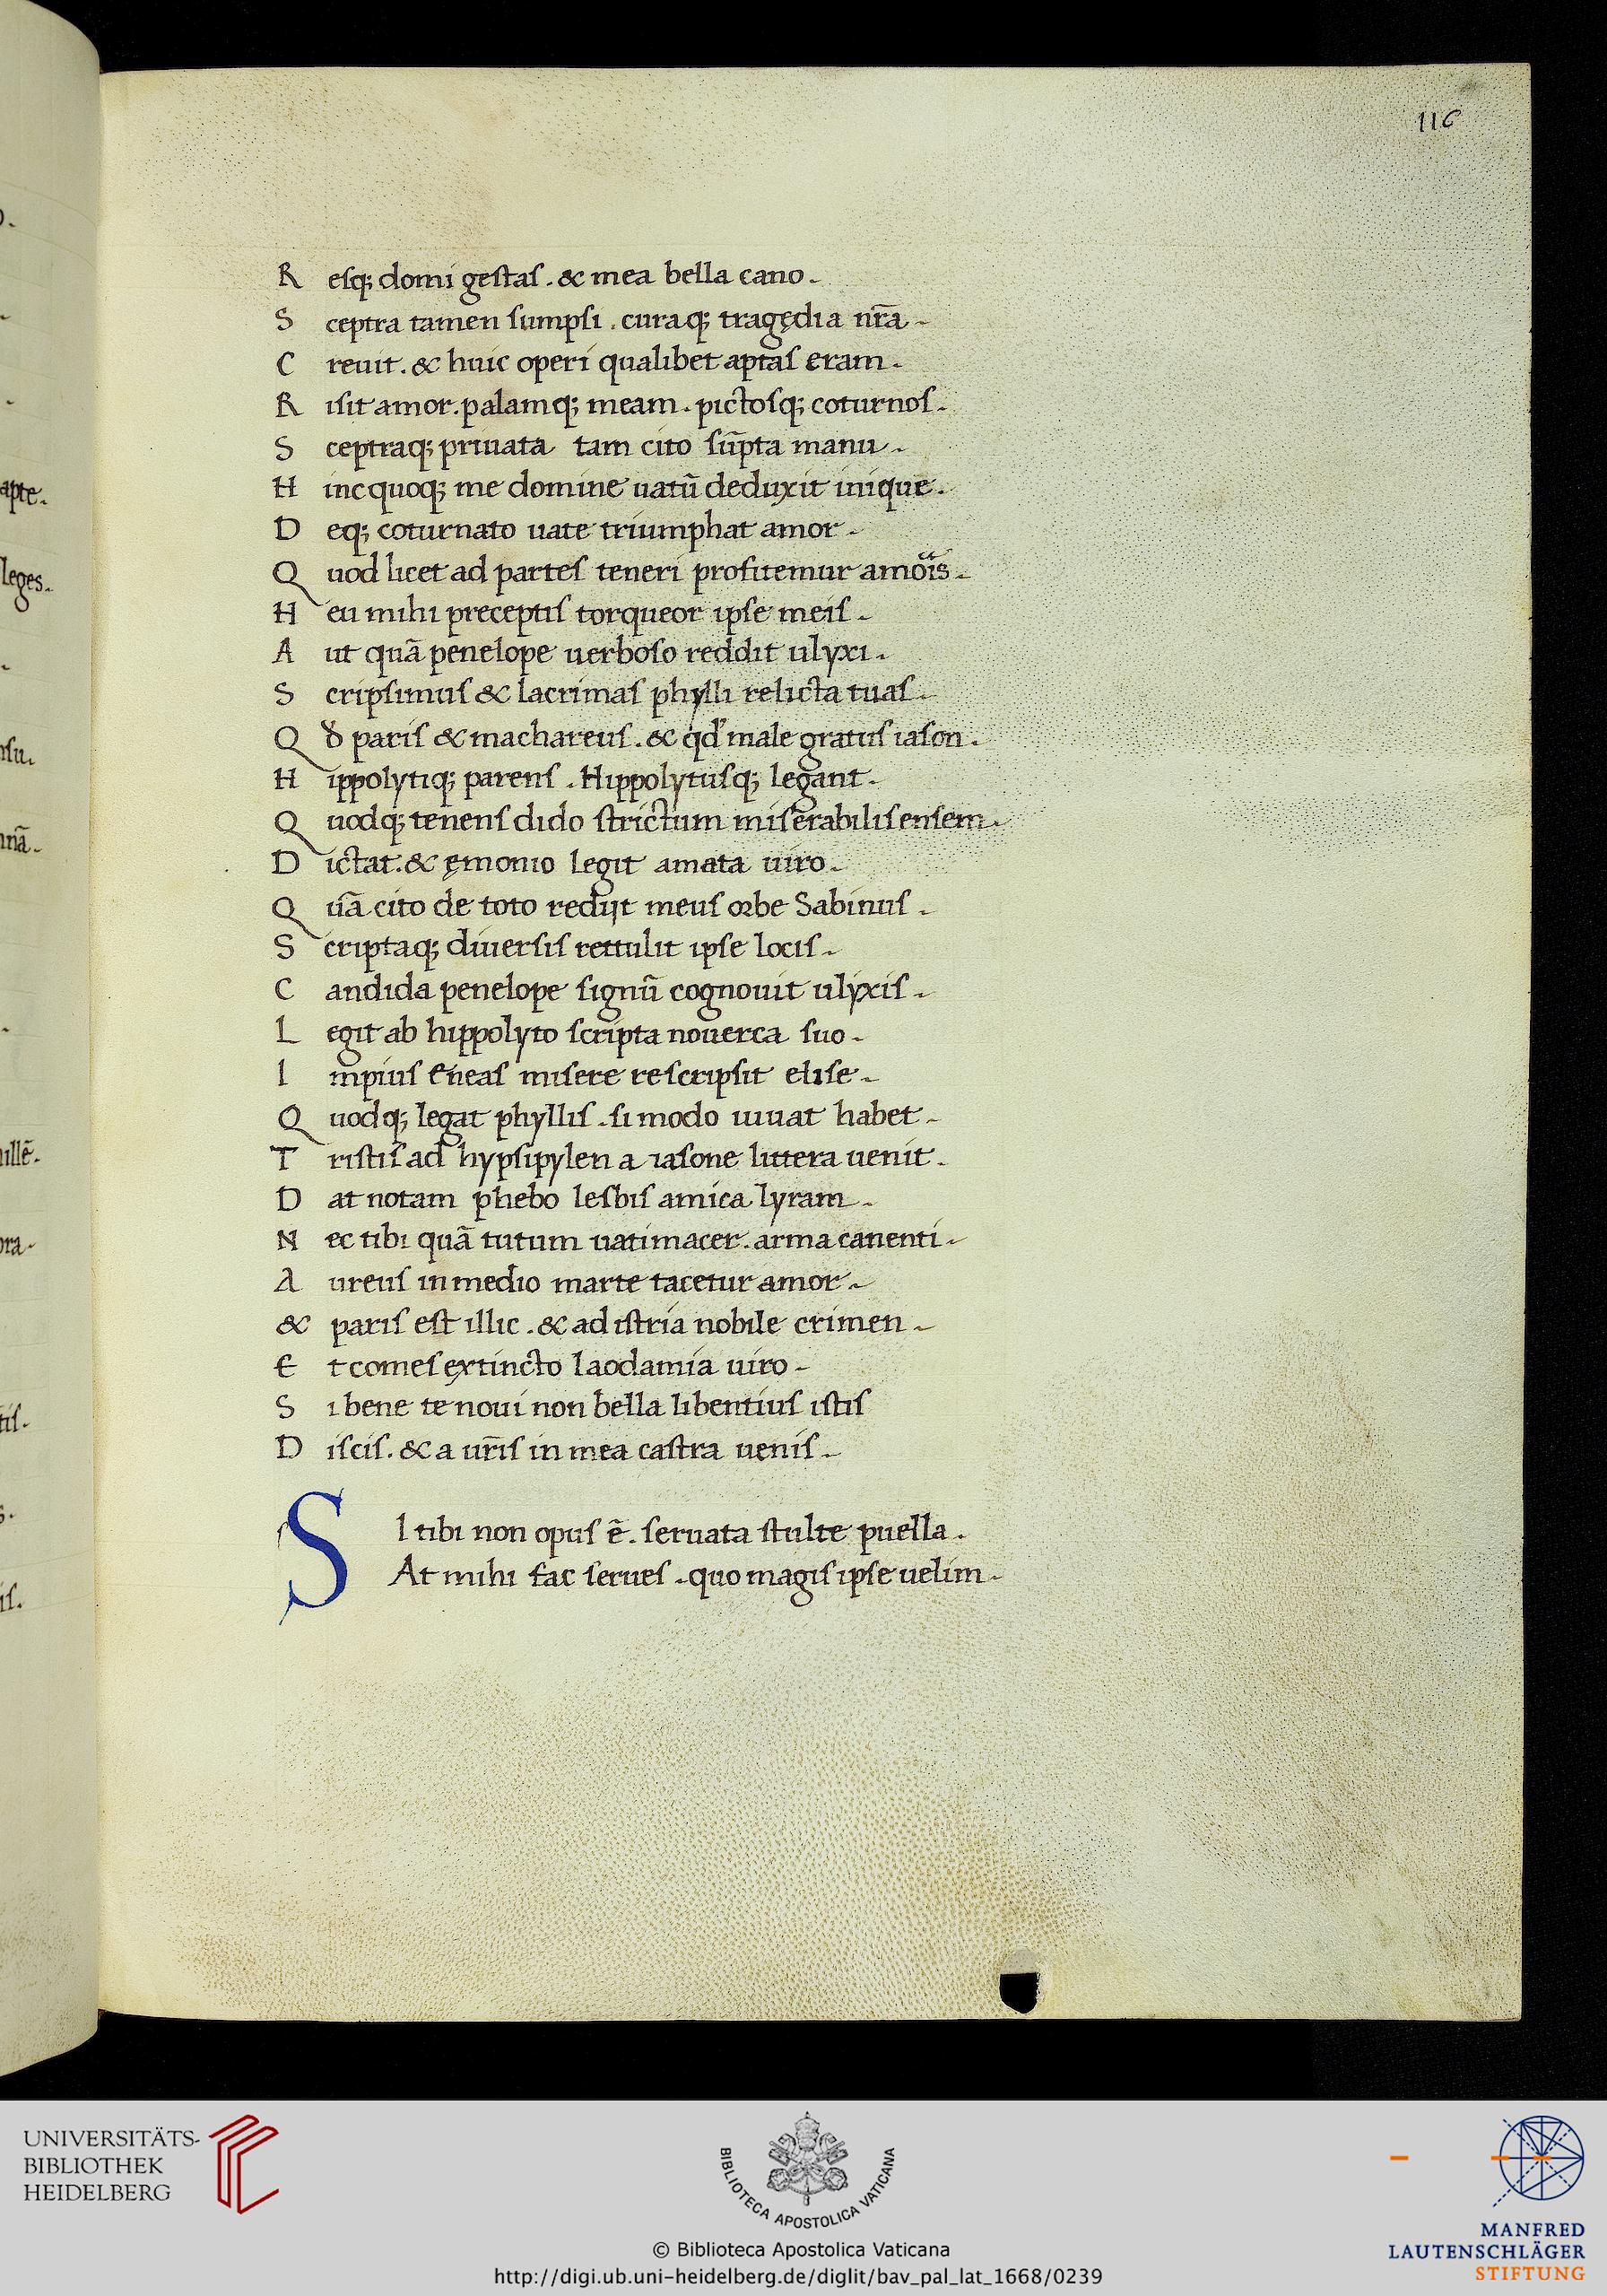 116
R esq; domi gestas . & mea bella cano .
S ceptra tamen sumpsi . curaq; tragędia nr̄a .
C reuit . & huic operi qualibet aptas eram .
R isit amor . palamq; meam . pictosq; coturnos .
S ceptraq; priuata tam cito sūpta manu .
H inc quoq; me domine uatū deduxit inique .
D eq; coturnato uate triumphat amor .
Q uod licet ad partes teneri profitemur
H eu mihi preceptis torqueor ipse meis .
A ut quā penelope uerboso reddit ulyxi .
S cripsimus & lacrimas phylli relicta tuas .
Q paris & machareus . & male gratus iason .
H ippolytiq; parens . Hippolytusq; legant .
Q uodq; tenens dido strictum miserabilis ensem .
D ictat . & ęmonio legit amata uiro .
Q uā cito de toto redijt meus orbe Sabinus .
S criptaq; diuersis rettulit ipse locis .
C andida penelope signū cognouit ulyxis .
L egit ab hippolyto scripta nouerca suo .
I mpius eneas misere rescripsit elise .
Q uodq; legat phyllis . si modo uiuat habet .
T ristis ad hypsipylen a iasone littera uenit .
D at notam phebo lesbis amica lyram .
N ec tibi quā tutum uati macer . arma canenti .
A ureus in medio marte tacetur amor .
& paris est illic . & adistria nobile crimen .
E t comes extincto laodamia uiro .
S i bene te noui non bella libentius istis
D iscis . & a ur̄is in mea castra uenis .
S I tibi non opus ē . seruata stulte puella .
At mihi fac serues . quo magis ipse uelim .
UNIVERSITÄTS-
BIBLIOTHEK
HEIDELBERG
BIBLIOTECA APOSTOLICA VATICANA
© Biblioteca Apostolica Vaticana
http://digi.ub.uni-heidelberg.de/diglit/bav_pal_lat_1668/0239
MANFRED
LAUTENSCHLÄGER
STIFTUNG